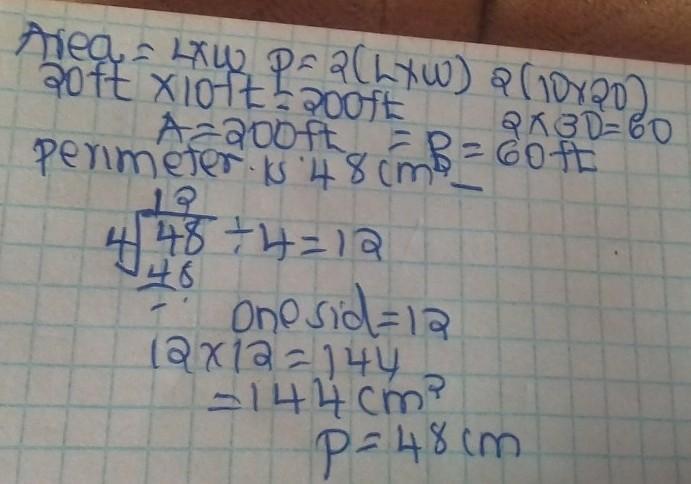 Area = L×W P = 2(L×W) 2(10×20)
20ft ×10ft = 200ft 2×30=60
A = 200ft = P = 60ft
perimeter is 48cm
12
4 48 ÷ 4 = 12
48
=
one sid = 12
12×12 = 144
= 144cm²
P = 48cm